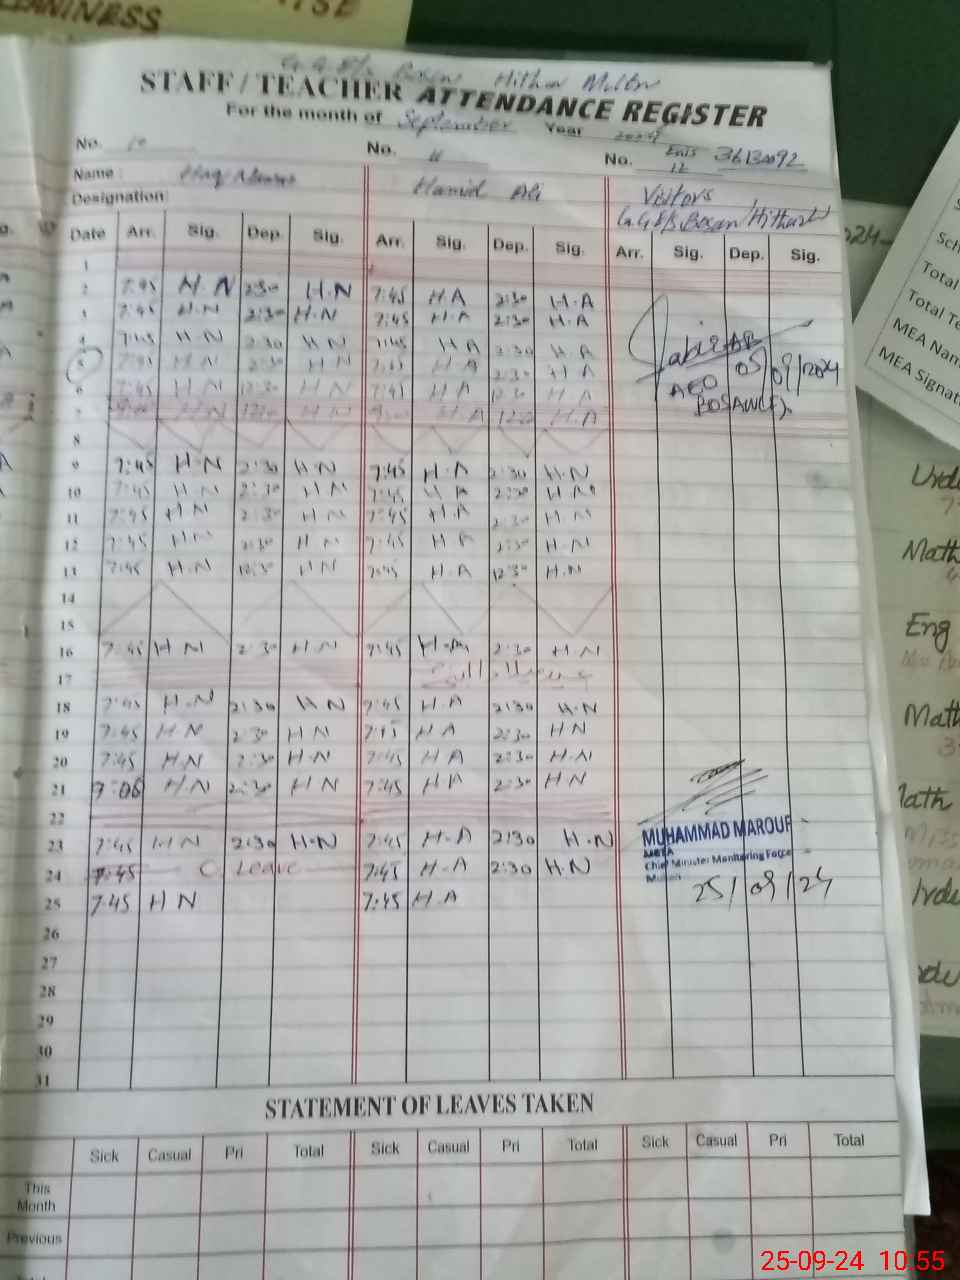 G.G.E/S Bosan Hithar Multan
STAFF / TEACHER ATTENDANCE REGISTER
For the month of September Year 2024
No. 10 No. 11 No. 12 Emis 36130092
Name : Haq Nawaz Hamid Ali Visitors
Designation: G.G.E/S Bosan/Hithar
Date Arr. Sig. Dep. Sig. Arr. Sig. Dep. Sig. Arr. Sig. Dep. Sig.
1
2 7:45 H.N 2:30 H.N 7:45 H.A 2:30 H.A
3 7:45 H.N 2:30 H.N 7:45 H.A 2:30 H.A
4 7:45 H N 2:30 H N 7:45 H A 2:30 H.A
5 7:45 H N 2:30 H N 7:45 H.A 2:30 H A
6 7:45 H N 12:30 H N 7:45 H.A 12:30 H.A
7 H N H N H.A H.A
AEO 05/09/2024
BOSAN(F).
8
9 7:45 H.N 2:30 H.N 7:45 H.A 2:30 H.N
10 7:45 H N 2:30 H N 7:45 H A 2:30 H.N
11 7:45 H N 2:30 H N 7:45 H.A 2:30 H N
12 7:45 H N 2:30 H N 7:45 H A 2:30 H.N
13 7:45 H.N 12:30 H N 7:45 H.A 12:30 H.N
14
15
16 7:45 H N 2:30 H N 7:45 H.A 2:30 H N
17
18 7:45 H.N 2:30 H N 7:45 H.A 2:30 H.N
19 7:45 H N 2:30 H N 7:45 H A 2:30 H N
20 7:45 H.N 2:30 H.N 7:45 H A 2:30 H.N
21 7:06 H.N 2:30 H N 7:45 H A 2:30 H N
22
23 7:45 H N 2:30 H.N 7:45 H.A 2:30 H.N
24 7:45 C. Leave 7:45 H.A 2:30 H.N
25 7:45 H N 7:45 H.A
MUHAMMAD MAROUF
MEA
Chief Minister Monitoring Force
Multan
25/09/24
26
27
28
29
30
31
STATEMENT OF LEAVES TAKEN
Sick Casual Pri Total Sick Casual Pri Total Sick Casual Pri Total
This Month
Previous
CLEANINESS
Total
Total Te
MEA Nam
MEA Signat
Math
Eng
Math
Math
25-09-24 10:55